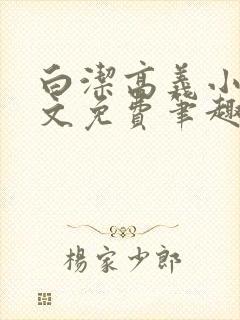 白潔高義小
文免費筆趣
楊家少郎